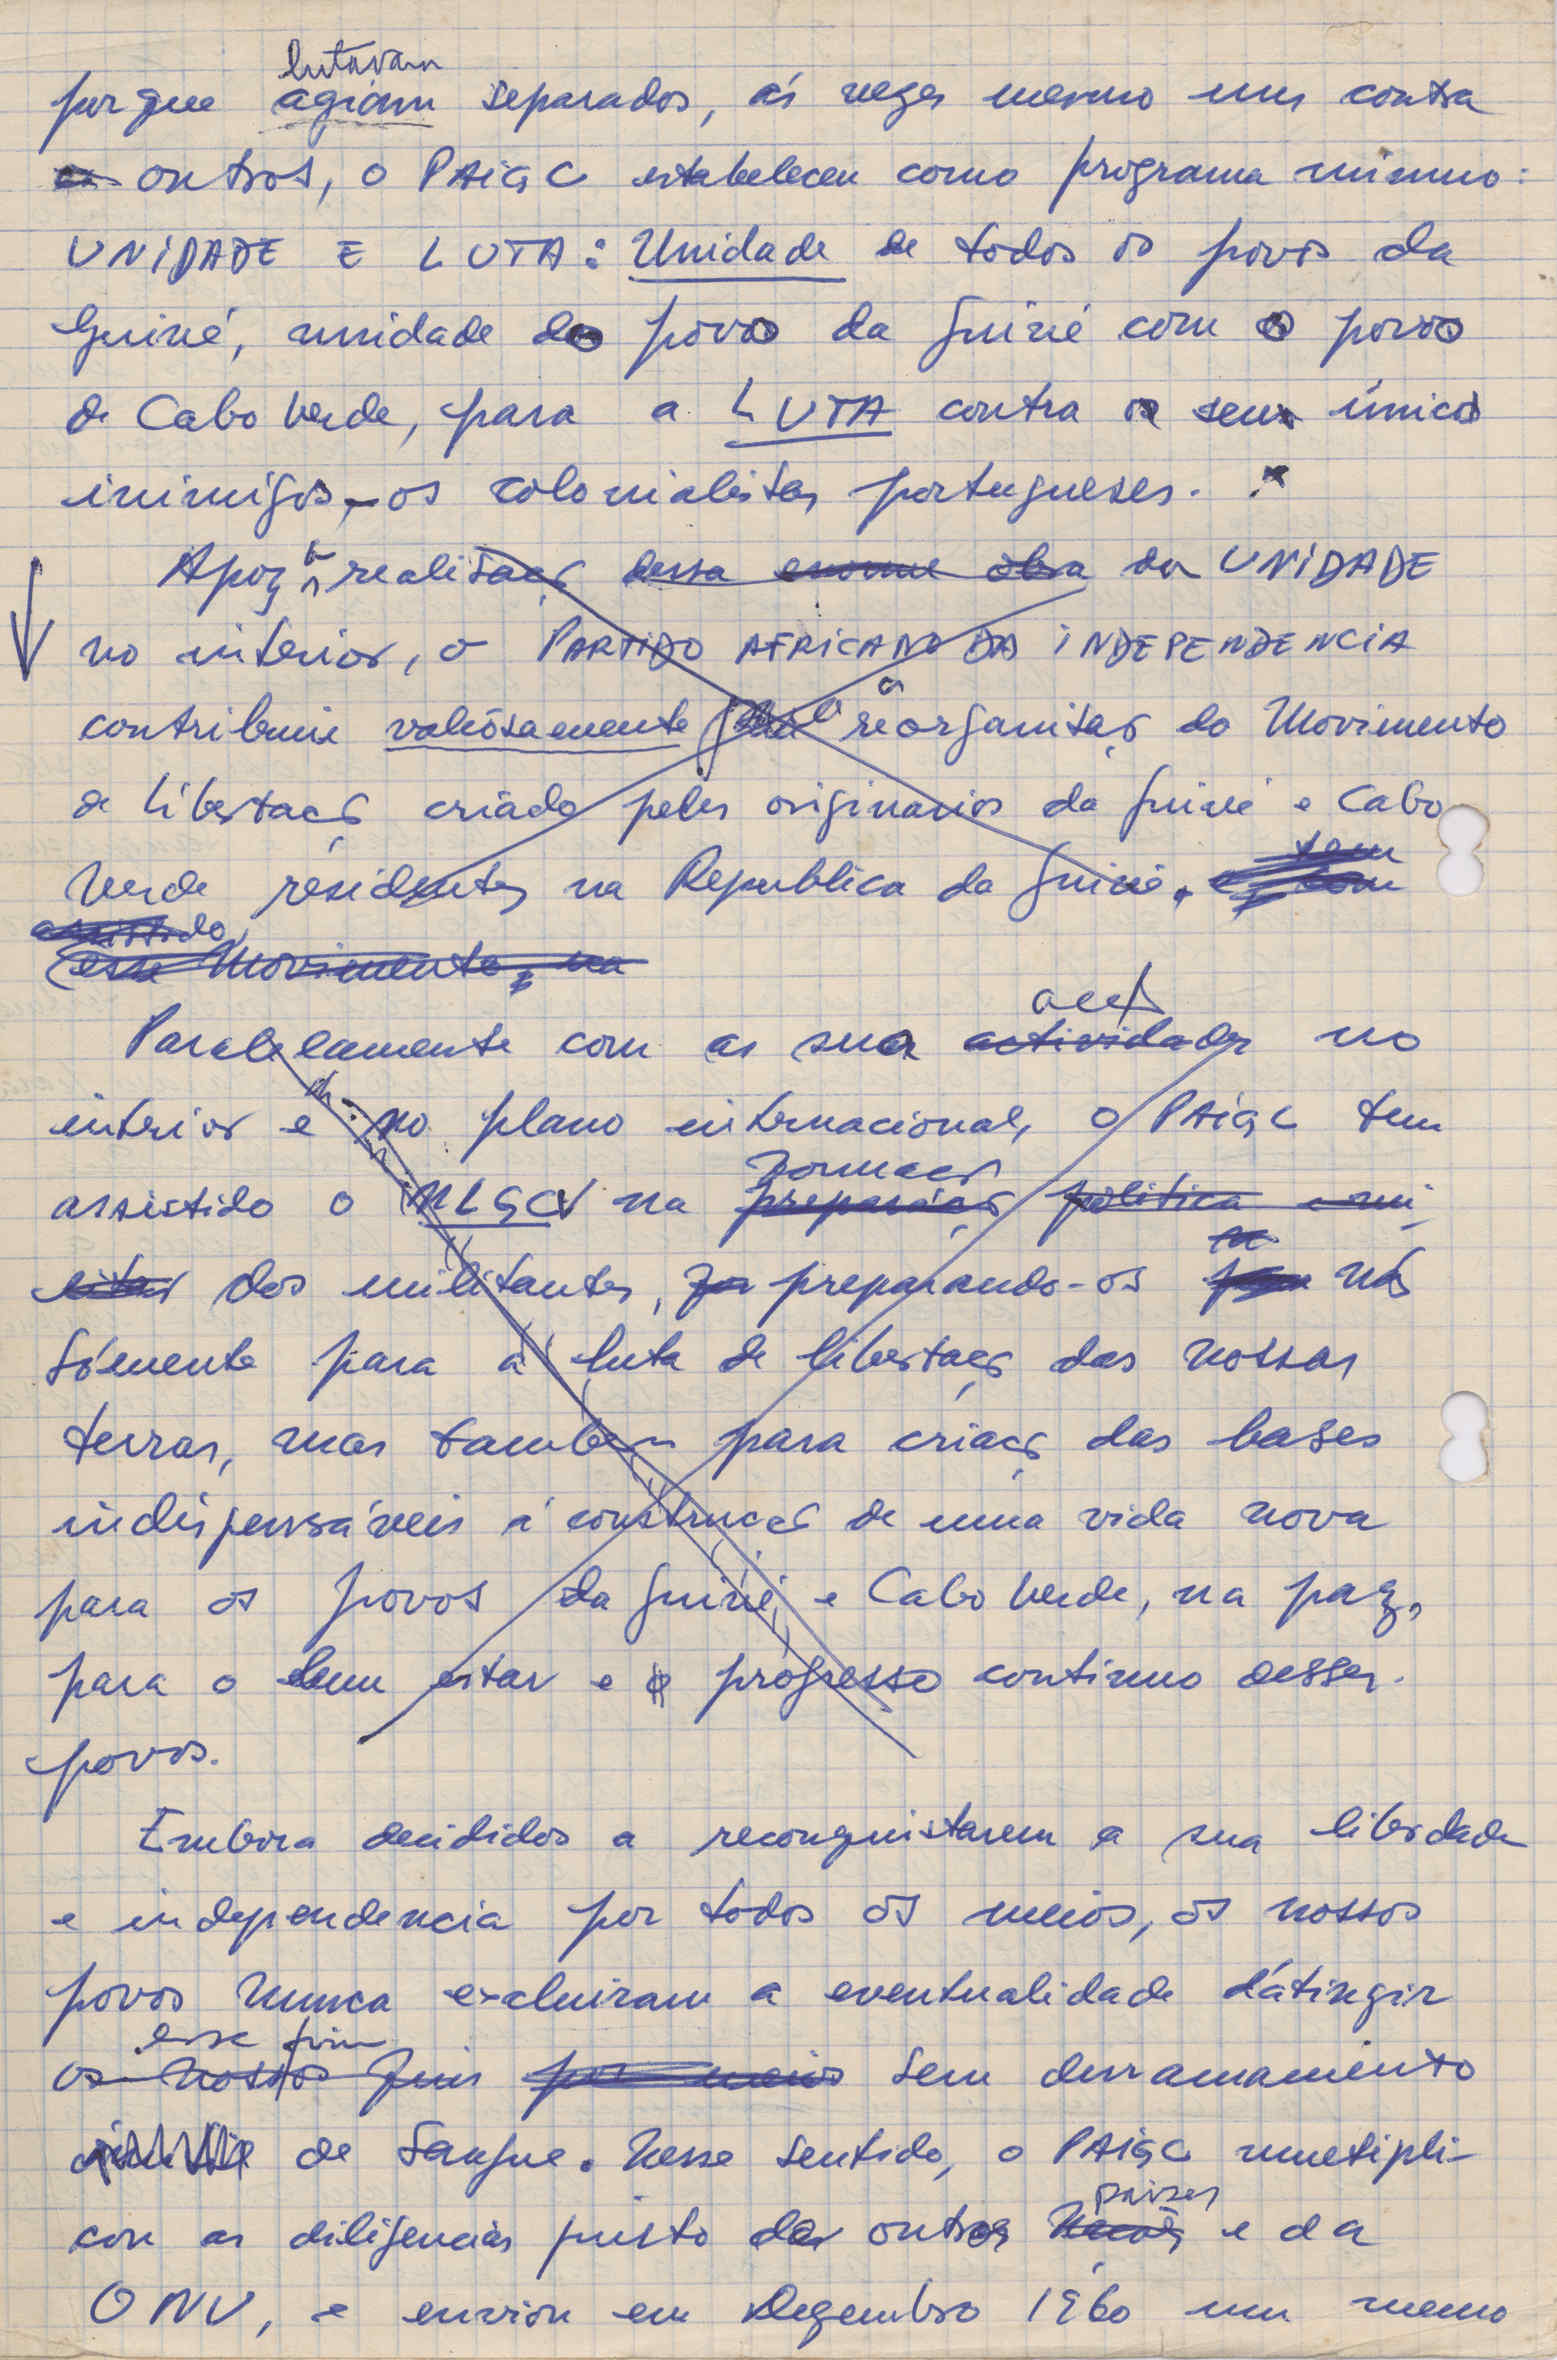 lutavam
porque agiam separados, ás vezes mesmo uns contra
os outros, o PAIGC estabeleceu como programa minimo:
UNIDADE E LUTA: Unidade de todos os povos da
Guiné, unidade do povo da Guiné com o povo
de Cabo Verde, para a LUTA contra os seus únicos
inimigos, - os colonialistas portugueses.
Apoz a realisação dessa enorme obra da UNIDADE
no interior, o PARTIDO AFRICANO DA INDEPENDENCIA
contribuiu valiosamente para a reorganisação do Movimento
de Libertação criado pelos originarios da Guiné e Cabo
Verde residentes na Republica da Guiné. tem
assistido
esse Movimento, na
acção
Paralelamente com as sua actividades no
interior e no plano internacional, o PAIGC tem
formação
assistido o MLGCV na preparação politica e mi-
litar dos militantes, preparando-os não
sómente para a luta de libertação das nossas
terras, mas tambem para criação das bases
indispensáveis á construção de uma vida nova
para os povos da Guiné e Cabo Verde, na paz,
para o bem estar e o progresso continuo desses
povos.
Embora decididos a reconquistarem a sua liberdade
e independencia por todos os meios, os nossos
povos nunca excluiram a eventualidade d'atingir
esse fim
os nossos fins por meios sem derramamento
de sangue. Nesse sentido, o PAIGC multipli-
paises
cou as diligencias junto de outros e da
ONU, e enviou em Dezembro 1960 um memo